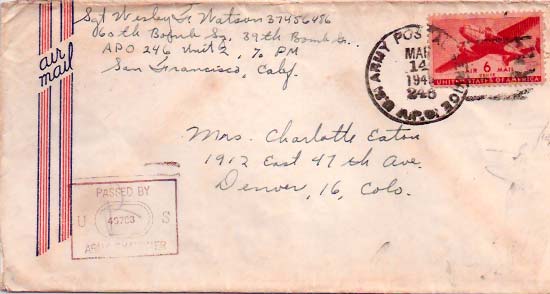 Sgt Wesley G Watson 37456486
60th Bomb Sq. 39th Bomb Gr.
APO 246 Unit 2, % PM
San Francisco, Calif.
air
mail
U.S. ARMY POSTAL SERVICE
MAR
14
246
A.P.O.
AIR 6 CENTS
UNITED STATES OF AMERICA
Mrs. Charlotte Eaton
1912 East 47th Ave.
Denver, 16, Colo.
PASSED BY
U S
ARMY EXAMINER